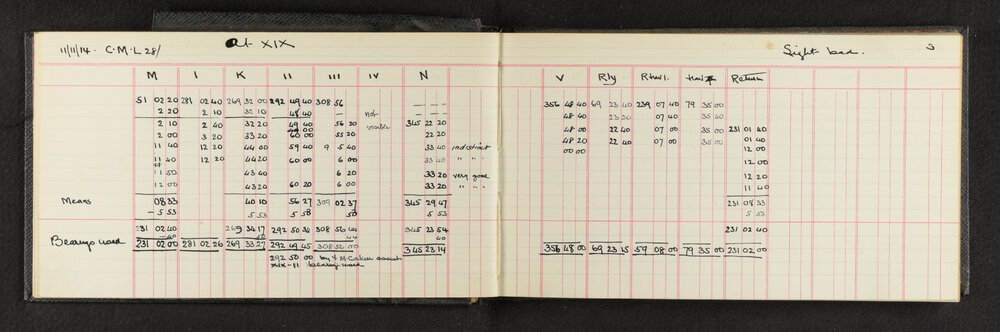 11/11/14. C.M.L 28/ At XIX Light bad. 3
M I K II III IV N V Rly Rtwl. Return
51 02 20 281 02 40 269 32 00 292 49 40 308 56 — — — 356 48 40 69 23 40 239 07 40 79 35 00
2 20 2 10 32 10 48 40 — not 48 40 23 20 07 40 35 40
2 10 2 40 33 20 49 40 56 20 visible 345 22 20 48 00 22 40 07 00 35 00 231 01 40
2 00 3 20 33 20 60 00 55 20 22 20 48 20 22 40 07 00 35 00 01 40
11 40 12 20 44 00 59 40 9 5 40 33 40 indistinct 00 00 12 00
11 40 12 20 44 20 60 00 6 00 33 40 " " " 12 00
11 50 43 40 6 20 33 20 very good 12 20
12 00 43 20 60 20 6 00 33 20 " " " 11 40
Means 08 33 40 10 56 27 309 02 37 345 29 47 231 08 33
— 5 53 5 53 5 58 5 53 5 53
231 02 40 269 34 17 292 50 34 308 56 44 345 23 54 231 02 40
Bearings used 231 02 00 281 02 26 269 33 27 292 49 45 308 56 00 345 23 14 356 48 00 69 23 15 59 08 00 79 35 00 231 02 00
292 50 00 by
XIX-II bearing used